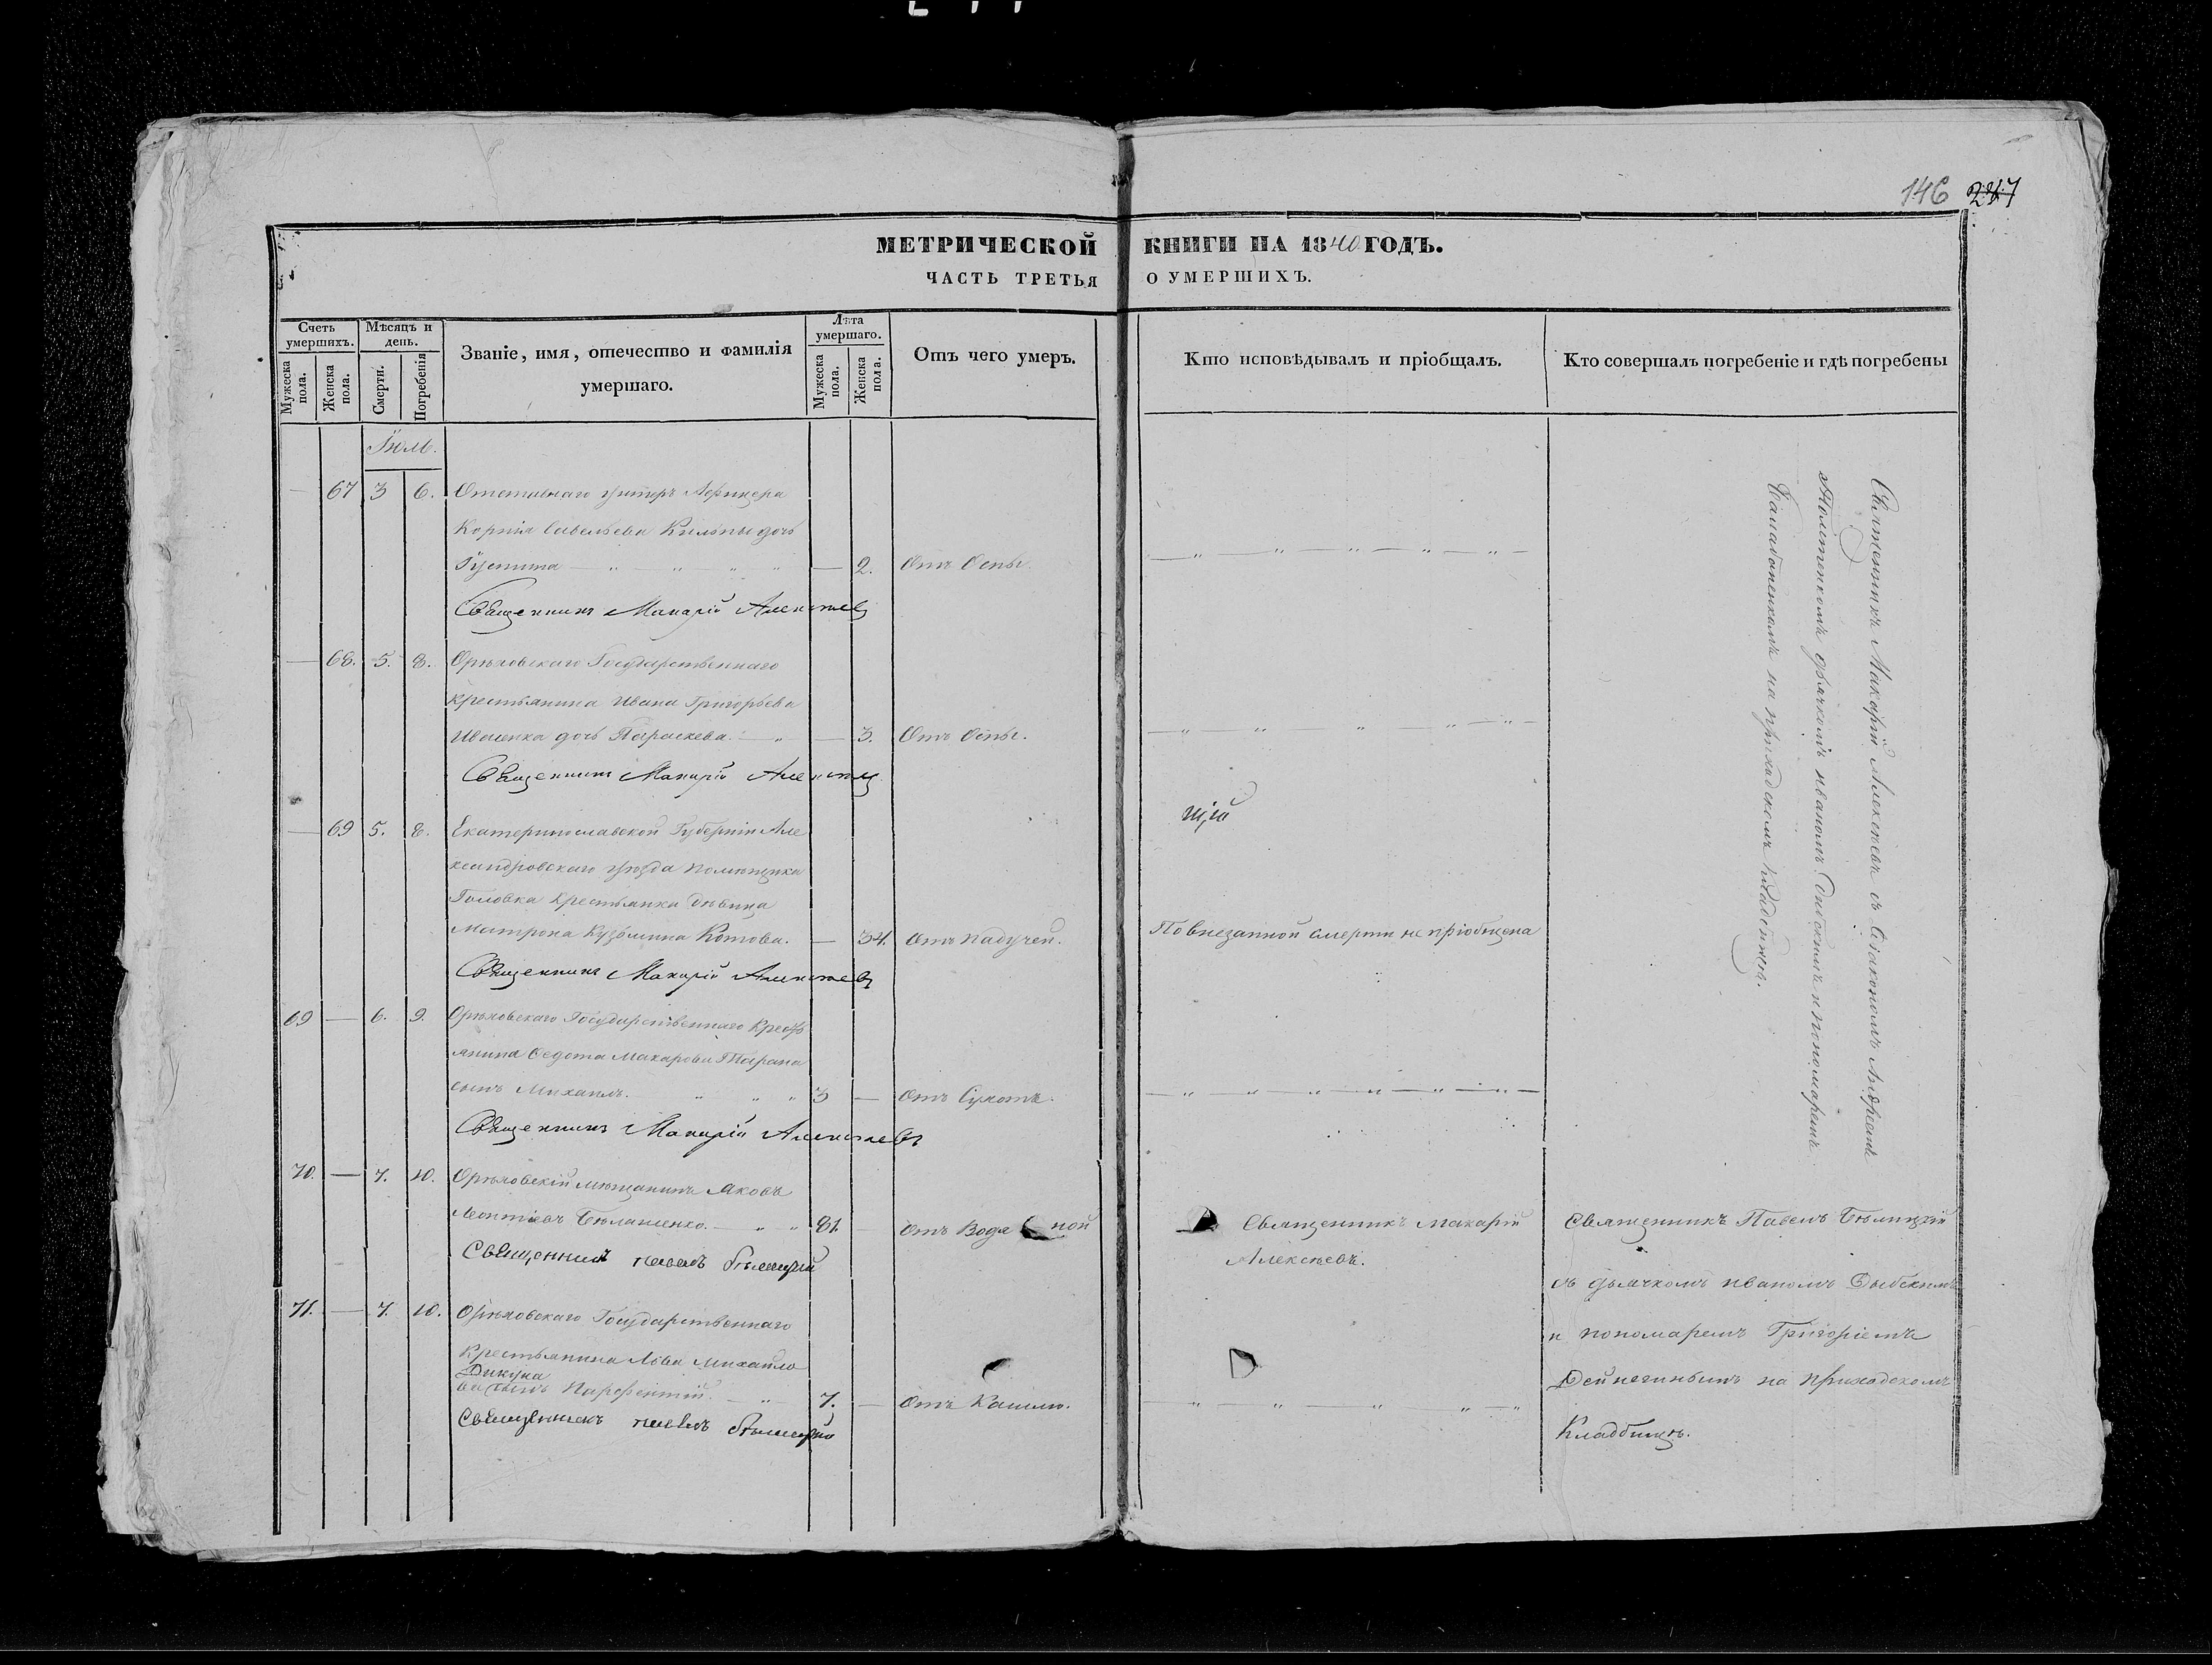 146 247
МЕТРИЧЕСКОЙ КНИГИ НА 1840 ГОДЪ.
ЧАСТЬ ТРЕТЬЯ О УМЕРШИХЪ.
Счетъ умершихъ.
Мужеска пола.
Женска пола.
Мѣсяцъ и день.
Смерти.
Погребенія
Званіе, имя, отечество и фамилія
умершаго.
Лѣта умершаго.
Мужеска пола.
Женска пола.
Отъ чего умеръ.
Кто исповѣдывалъ и пріобщалъ.
Кто совершалъ погребеніе и гдѣ погребены
Іюль.
— 67 3 6. Отставнаго Унтеръ Афицера
Корнія Савельева дочь
Іустина — 2. Отъ Оспы.
Священникъ Макарій Алексѣевъ
— 68. 5. 8. Орѣховскаго Государственнаго
Крестьянина Ивана Григорьева
Ивленка дочь Параскева. — 3. Отъ Оспы.
Священникъ Макарій Алексѣевъ
— 69 5. 8. Екатеринославской Губерніи Але
ксандровскаго уѣзда помѣщика
Головка Крестьянка дѣвица
Матрона Кузьмина Котова. — 34. Отъ падучей. По внезапной смерти не пріобщена
Священникъ Макарій Алексѣевъ
69 — 6. 9. Орѣховскаго Государственнаго Кресть
янина Ѳедота Макарова Тарана
сынъ Михаилъ. 3 — Отъ Сухотъ.
Священникъ Макарій Алексѣевъ
70. — 7. 10. Орѣховскій мѣщанинъ Яковъ
Леонтіевъ 81. — Отъ Водяной Священникъ Макарій
Алексѣевъ.
Священникъ Павелъ Бѣлицкій
71. — 7. 10. Орѣховскаго Государственнаго
Крестьянина Льва Михайло
Дикуна
ва сынъ Парфентій. 7. — Отъ Кашлю.
Священникъ Павелъ Бѣлицкій
Священникъ Макарій Алексѣевъ съ Діакономъ Андреемъ
дьячкомъ Иваномъ Дибскимъ и пономаремъ
на приходскомъ Кладбищѣ.
Священникъ Павелъ Бѣлицкій
съ дьячкомъ Иваномъ Дыбскимъ
и пономаремъ Григоріемъ
Дейнегинымъ на Приходскомъ
Кладбищѣ.